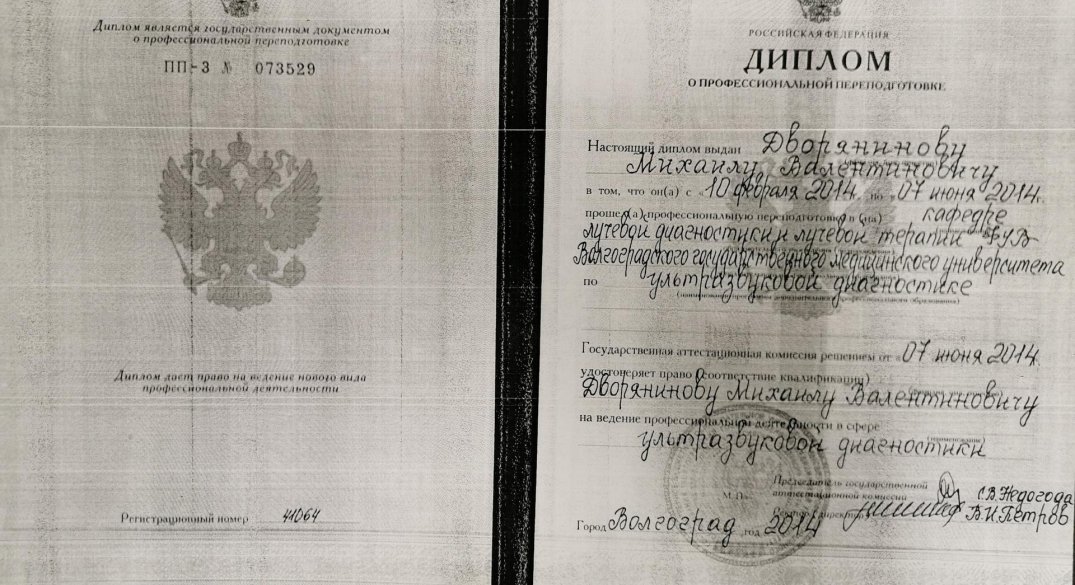 Диплом является государственным документом
о профессиональной переподготовке
ПП-3 № 073529
Диплом дает право на ведение нового вида
профессиональной деятельности
Регистрационный номер 41064
РОССИЙСКАЯ ФЕДЕРАЦИЯ
ДИПЛОМ
О ПРОФЕССИОНАЛЬНОЙ ПЕРЕПОДГОТОВКЕ
Настоящий диплом выдан Дворянинову
Михаилу Валентиновичу
в том, что он(а) с «10 февраля 2014г. по «07 июня 2014г.
прошел(а) профессиональную переподготовку в (на) кафедре
лучевой диагностики и лучевой терапии ФУВ
Волгоградского государственного медицинского университета
по ультразвуковой диагностике
(наименование программы дополнительного профессионального образования)
Государственная аттестационная комиссия решением от «07 июня 2014г.
удостоверяет право (соответствие квалификации)
Дворянинову Михаилу Валентиновичу
на ведение профессиональной деятельности в сфере
ультразвуковой диагностики
(наименование)
Председатель государственной
аттестационной комиссии С.В.Недогода
М.П.
Ректор (директор) В.И.Петров
Город Волгоград год 2014